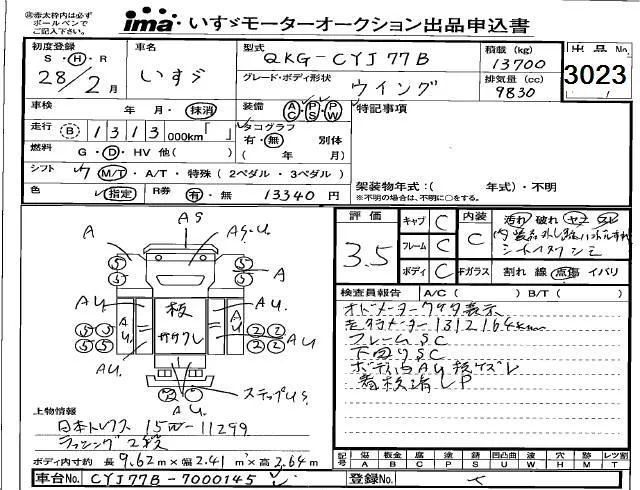 ㊟赤太枠内は必ず
ボールペンで
ご記入下さい。
ima いすゞモーターオークション出品申込書
初度登録 S・H・R 28/2月
車名 いすゞ
型式 QKG-CYJ77B
積載(kg) 13700
グレード・ボディ形状 ウイング
排気量(cc) 9830
出品No.
3023
車検 年 月・抹消
装備 AC・PS・PW
特記事項
走行 B 1313 000km「 」
タコグラフ 有・無 別体
( 年 月)
燃料 G・D・HV 他( )
シフト 7 M/T・A/T・特殊(2ペダル・3ペダル)
色 指定 R券 有・無 13340円
架装物年式:( 年式)・不明
※不明の場合は、不明に○をする。
評価 3.5
キャブ C
フレーム C
ボディ C
内装 C
汚れ 破れ
シートスクシミ
Fガラス 割れ 線 点傷 イバリ
検査員報告 A/C( ) B/T( )
オドメーター
走行メーター1312164km
フレームSC
下回りSC
ボデー内AU
LP
AS
A
AS.U.
A
AU
AU
AU.
AU.
AU.
AU.
板ササクレ
5 5 5 5
5 5 5 5
2 2 2 2
ステップUS.
AU.
上物情報
日本トレクス 15W-11299
ラッシング2段
ボディ内寸約 長9.62m×幅2.41m×高2.64m
記号 傷A 板金B 腐C 塗P 錆S 凹凸曲U 補修W 欠X 穴H 跡M レツ割T
車台No. CYJ77B-7000145
登録No.